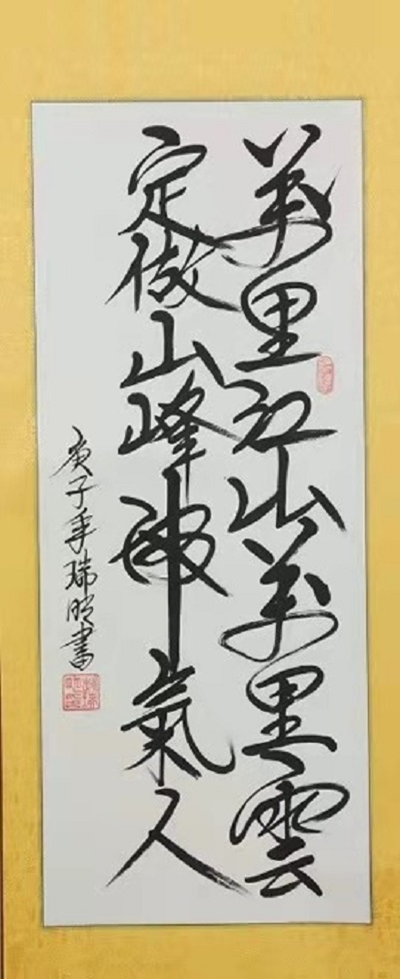 萬里江山萬里雲
定做山峰神氣人
庚子年瑞明書